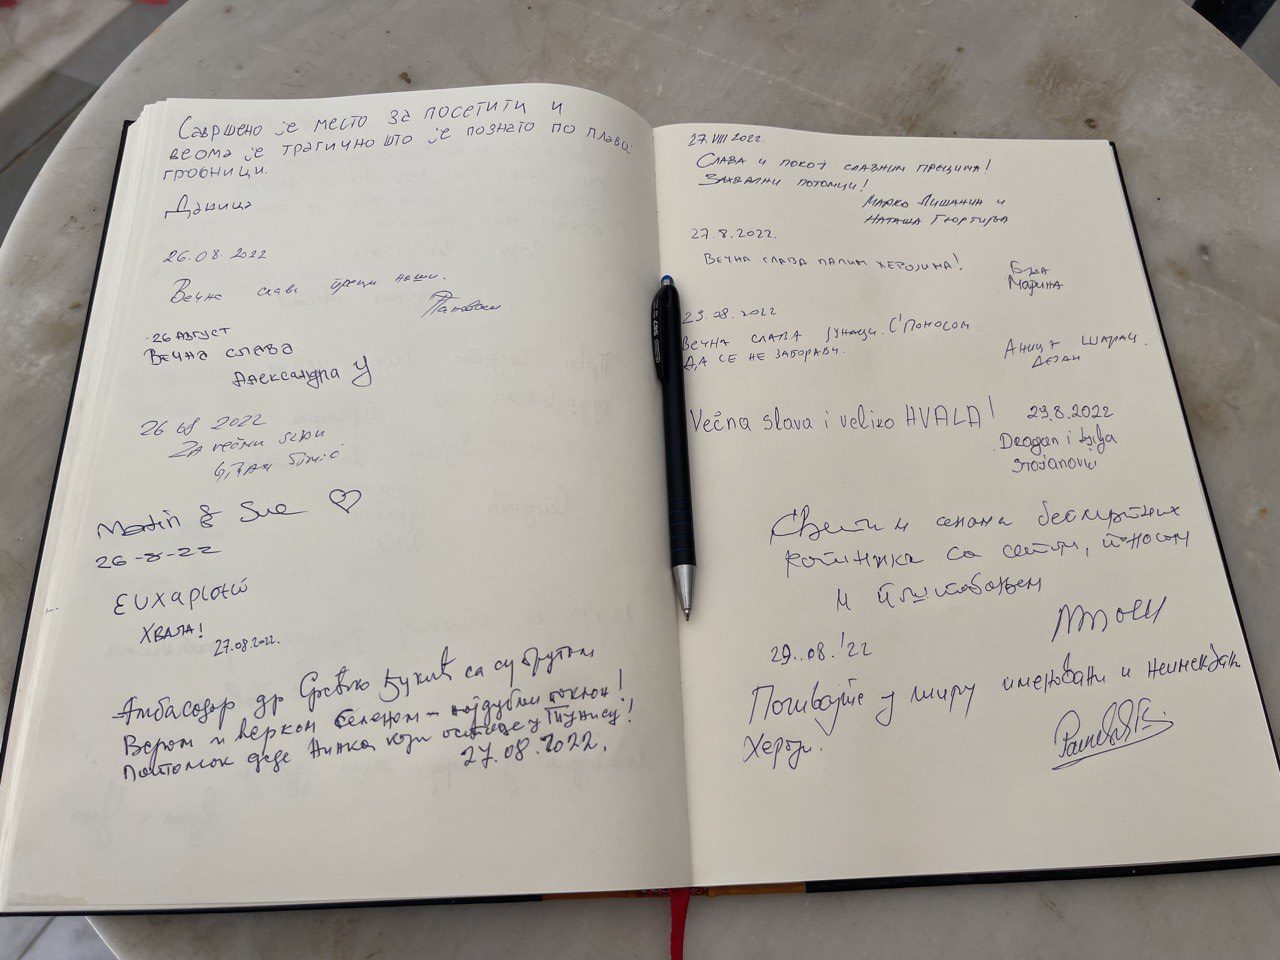 Савршено је место за посетити и
веома је трагично што је познато по плавој
гробници.
Даница
26.08.2022
Вечна слава
26 Август
Вечна слава
Александра У
26 08 2022
За већни
Martin & Sue ♡
26-8-22
ευχαριστώ
ХВАЛА!
27.08.2022.
Амбасадор др са супругом
Вером и ћерком Јеленом – најдубљи поклон!
Потомак деде који остаде у Тунису!
27.08.2022.
27.VIII 2022.
Слава и покој славним прецима!
Захвални потомци!
Марко Лишанин и
Наташа
27.8.2022.
Вечна слава палим херојима!
Марина
29.08.2022
Вечна слава јунаци. С'Поносом
да се не заборави.
Аница
Дејан
Večna slava i veliko HVALA!
29.8.2022
Dragan i
Stojanović
бесмртних
ратника са сетом, поносом
и поштовањем
29.08.'22
Почивајте у миру именовани и неименовани
Хероји.